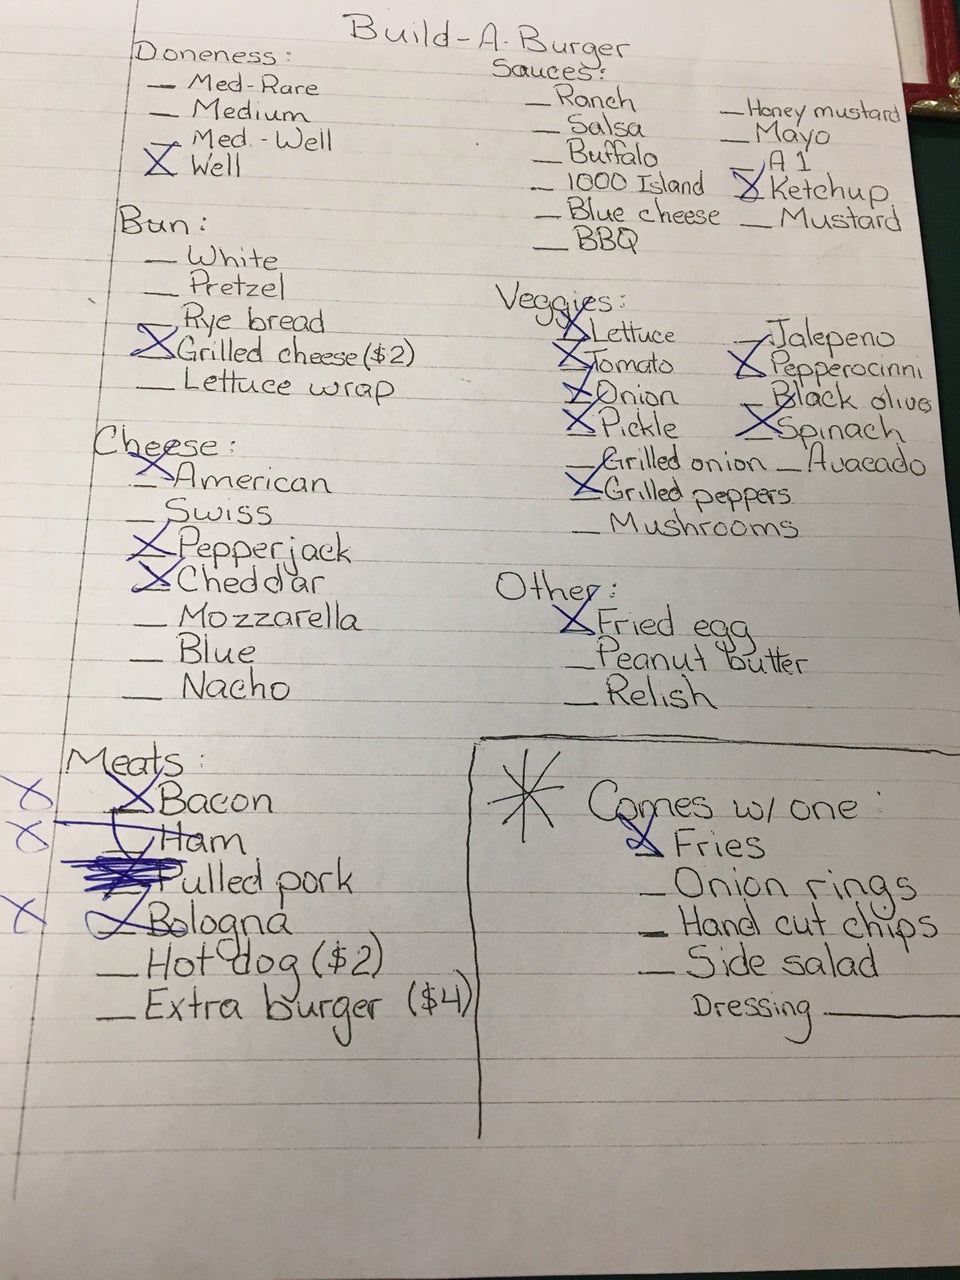 Build-A-Burger
Doneness:
__ Med-Rare
__ Medium
__ Med.-Well
X Well
Bun:
__ White
__ Pretzel
__ Rye bread
X Grilled cheese ($2)
__ Lettuce wrap
Cheese:
X American
__ Swiss
X Pepperjack
X Cheddar
__ Mozzarella
__ Blue
__ Nacho
Meats:
X X Bacon
X Ham
Pulled pork
X X Bologna
__ Hot dog ($2)
__ Extra burger ($4)
Sauces:
__ Ranch
__ Salsa
__ Buffalo
__ 1000 Island
__ Blue cheese
__ BBQ
__ Honey mustard
__ Mayo
__ A1
X Ketchup
__ Mustard
Veggies:
X Lettuce
X Tomato
X Onion
X Pickle
__ Grilled onion
X Grilled peppers
__ Mushrooms
__ Jalepeno
X Pepperocinni
__ Black olive
X Spinach
__ Avacado
Other:
X Fried egg
__ Peanut butter
__ Relish
* Comes w/ one:
X Fries
__ Onion rings
__ Hand cut chips
__ Side salad
Dressing ______